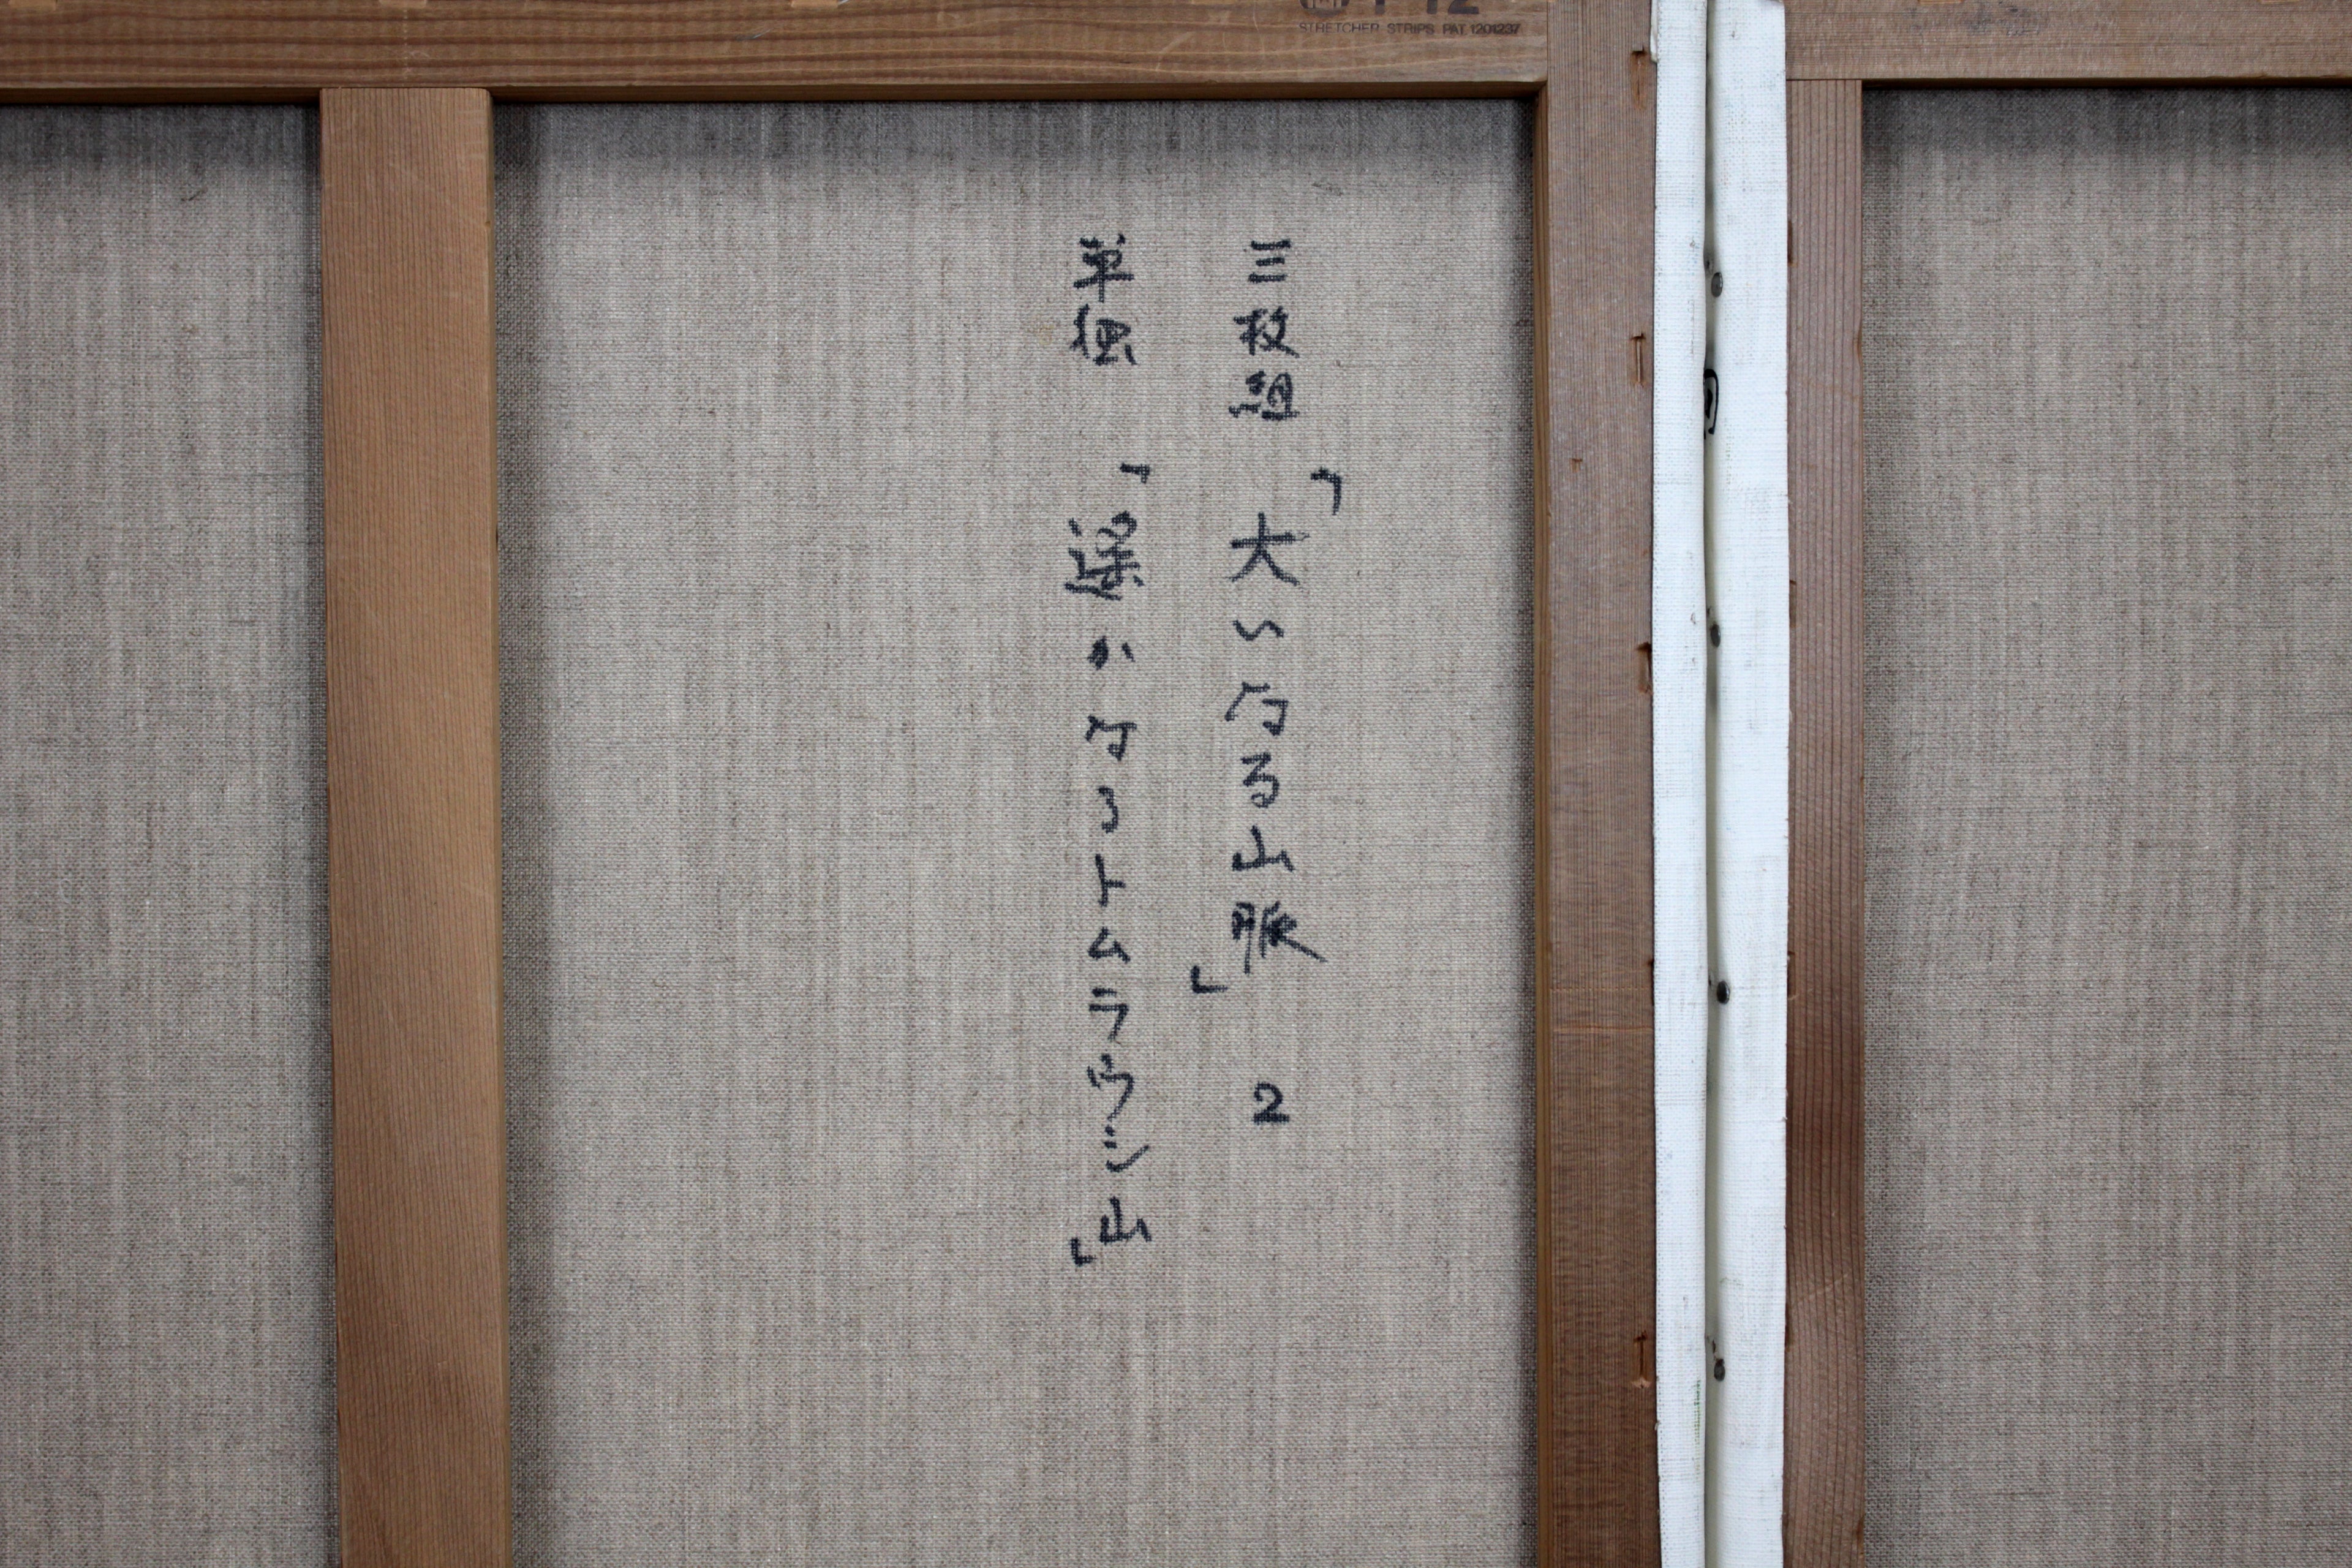 三枚組 「大いなる山脈」 2
単独 「遥かなるトムラウシ山」
STRETCHER STRIPS PAT.1201237